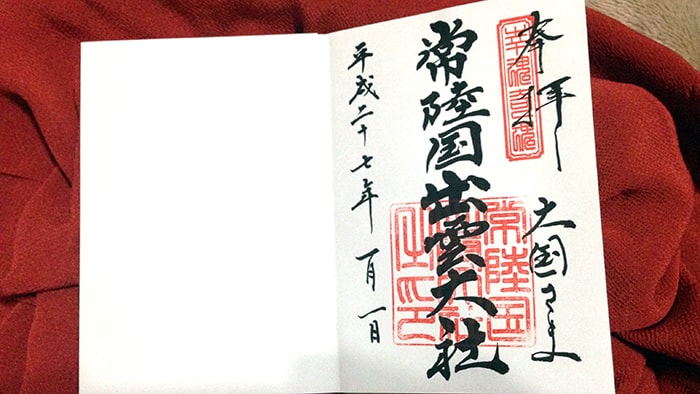 奉拝
幸魂奇魂
大国さま
常陸国出雲大社
常陸国
出雲大社
之印
平成二十七年 一月一日